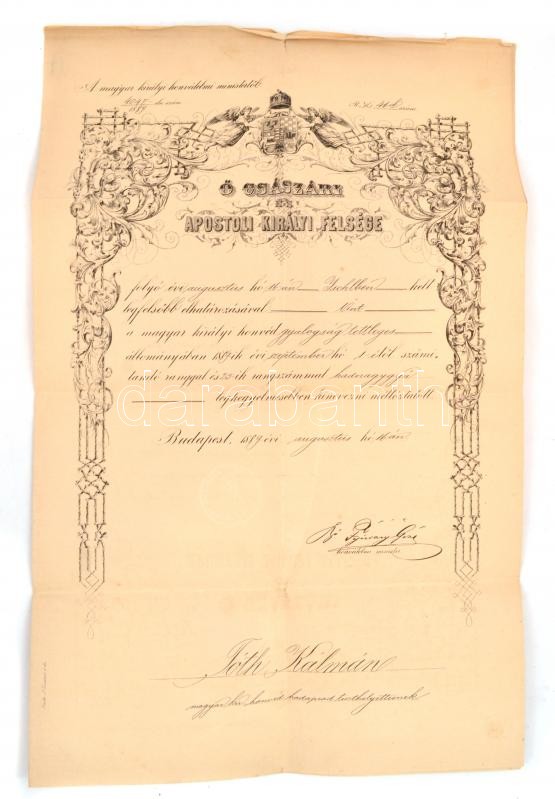 A magyar királyi honvédelmi ministertől
1889
Ő CSÁSZÁRI
ÉS
APOSTOLI KIRÁLYI FELSÉGE
folyó évi augusztus hó án Ischlben kelt
legfelsőbb elhatározásával Önt
a magyar királyi honvéd gyalogság tettleges
állományában 1889 ik évi szeptember hó 1 étől számi-
tandó ranggal és ik rangszámmal hadnagygyá
legkegyelmesebben kinevezni méltóztatott.
Budapest, 1889 évi augusztus hó án
honvédelmi minister
Tóth Kálmán
magyar kir honvéd hadapród tiszthelyettesnek
darabanth